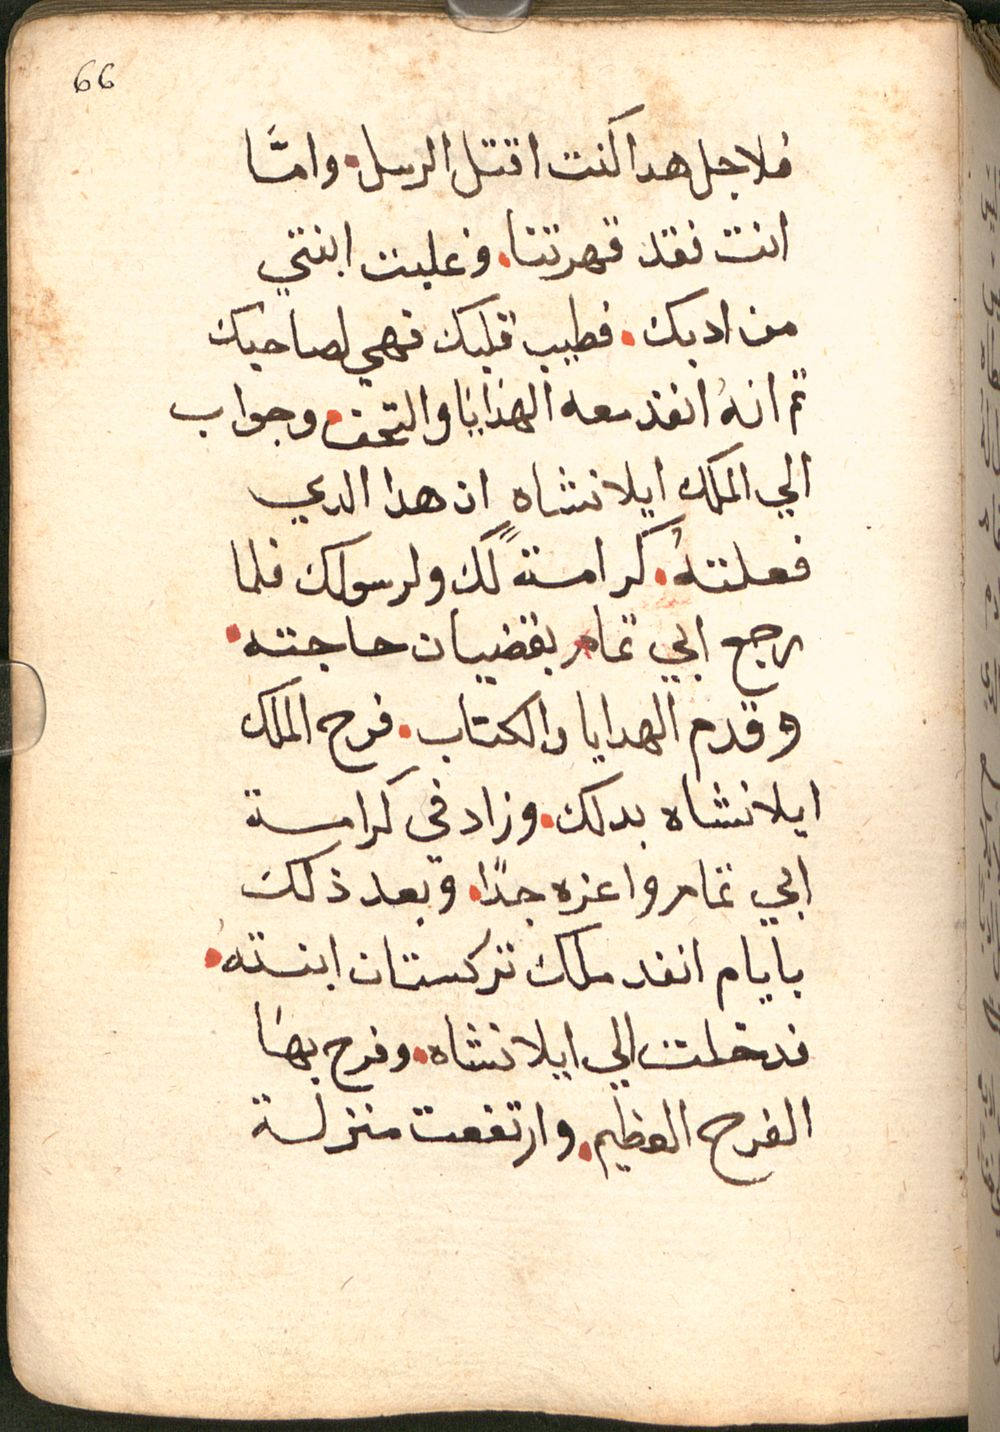 66
فلاجل هدا كنت اقتل الرسل. وامّا
انت فقد قهرتنا. وغلبت ابنتي
من ادبك. فطيب قلبك فهي لصاحبك
تم انهُ انفذ معه الهدايا والتحف. وجواب
الي الملك ايلانشاه ان هدا الدي
فعلتهُ. كرامةً لك ولرسولك فلما
رجع ابي تمام بقضيان حاجته.
وقدم الهدايا والكتاب. فرح الملك
ايلانشاه بدلك. وزاد في كرامة
ابي تمام واعزه جدًا. وبعد ذلك
بايام انفد ملك تركستان ابنتهُ.
فدخلت الي ايلانشاه. وفرح بها
الفرح العظيم. وارتفعت منزلة